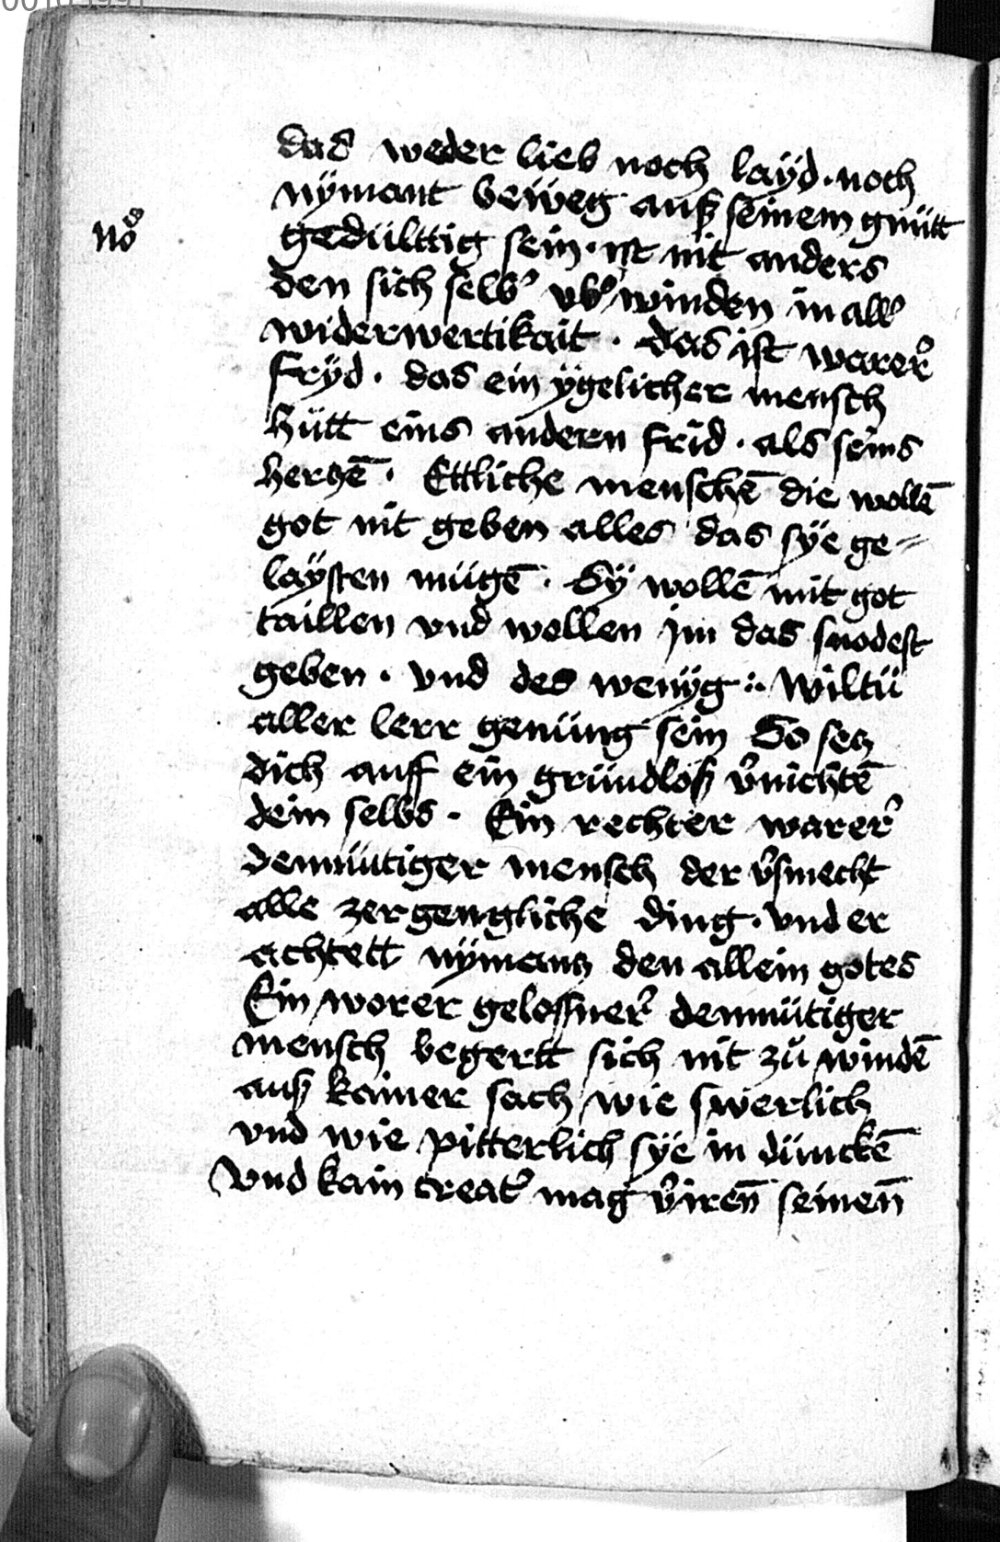 das weder lieb noch laÿd · noch
nÿmant beweg auß seinem gmütt
No
gedülttig sein · ist nit anders
den sich selb' vb' winden in all'
widerwertikait · das ist warer'
frÿd · das ein ÿgelicher mensch
hütt eins andern frid · als seins
herczē · Ettliche menschē die wollē
got nit geben alles das sÿe ge⸗
laÿsten mügē · Sÿ wollē mit got
taillen vnd wollen jm das snodest
geben · vnd des wenÿg :· Wiltü
aller lerr genüng sein So secz
dich auff ein gründloß v'nichtē
dein selbs · Ein rechter warer'
demmütiger mensch der v'smecht
alle zergengliche ding · vnd er
achtett nÿmancz den allein gotes
Ein worer gelossner' demmütiger
mensch begertt sich nit zů windē
auß kainer sach wie swerlich
vnd wie pitterlich sÿe in dünckē
Vnd kain creat' mag v'iren̄ seinen̄